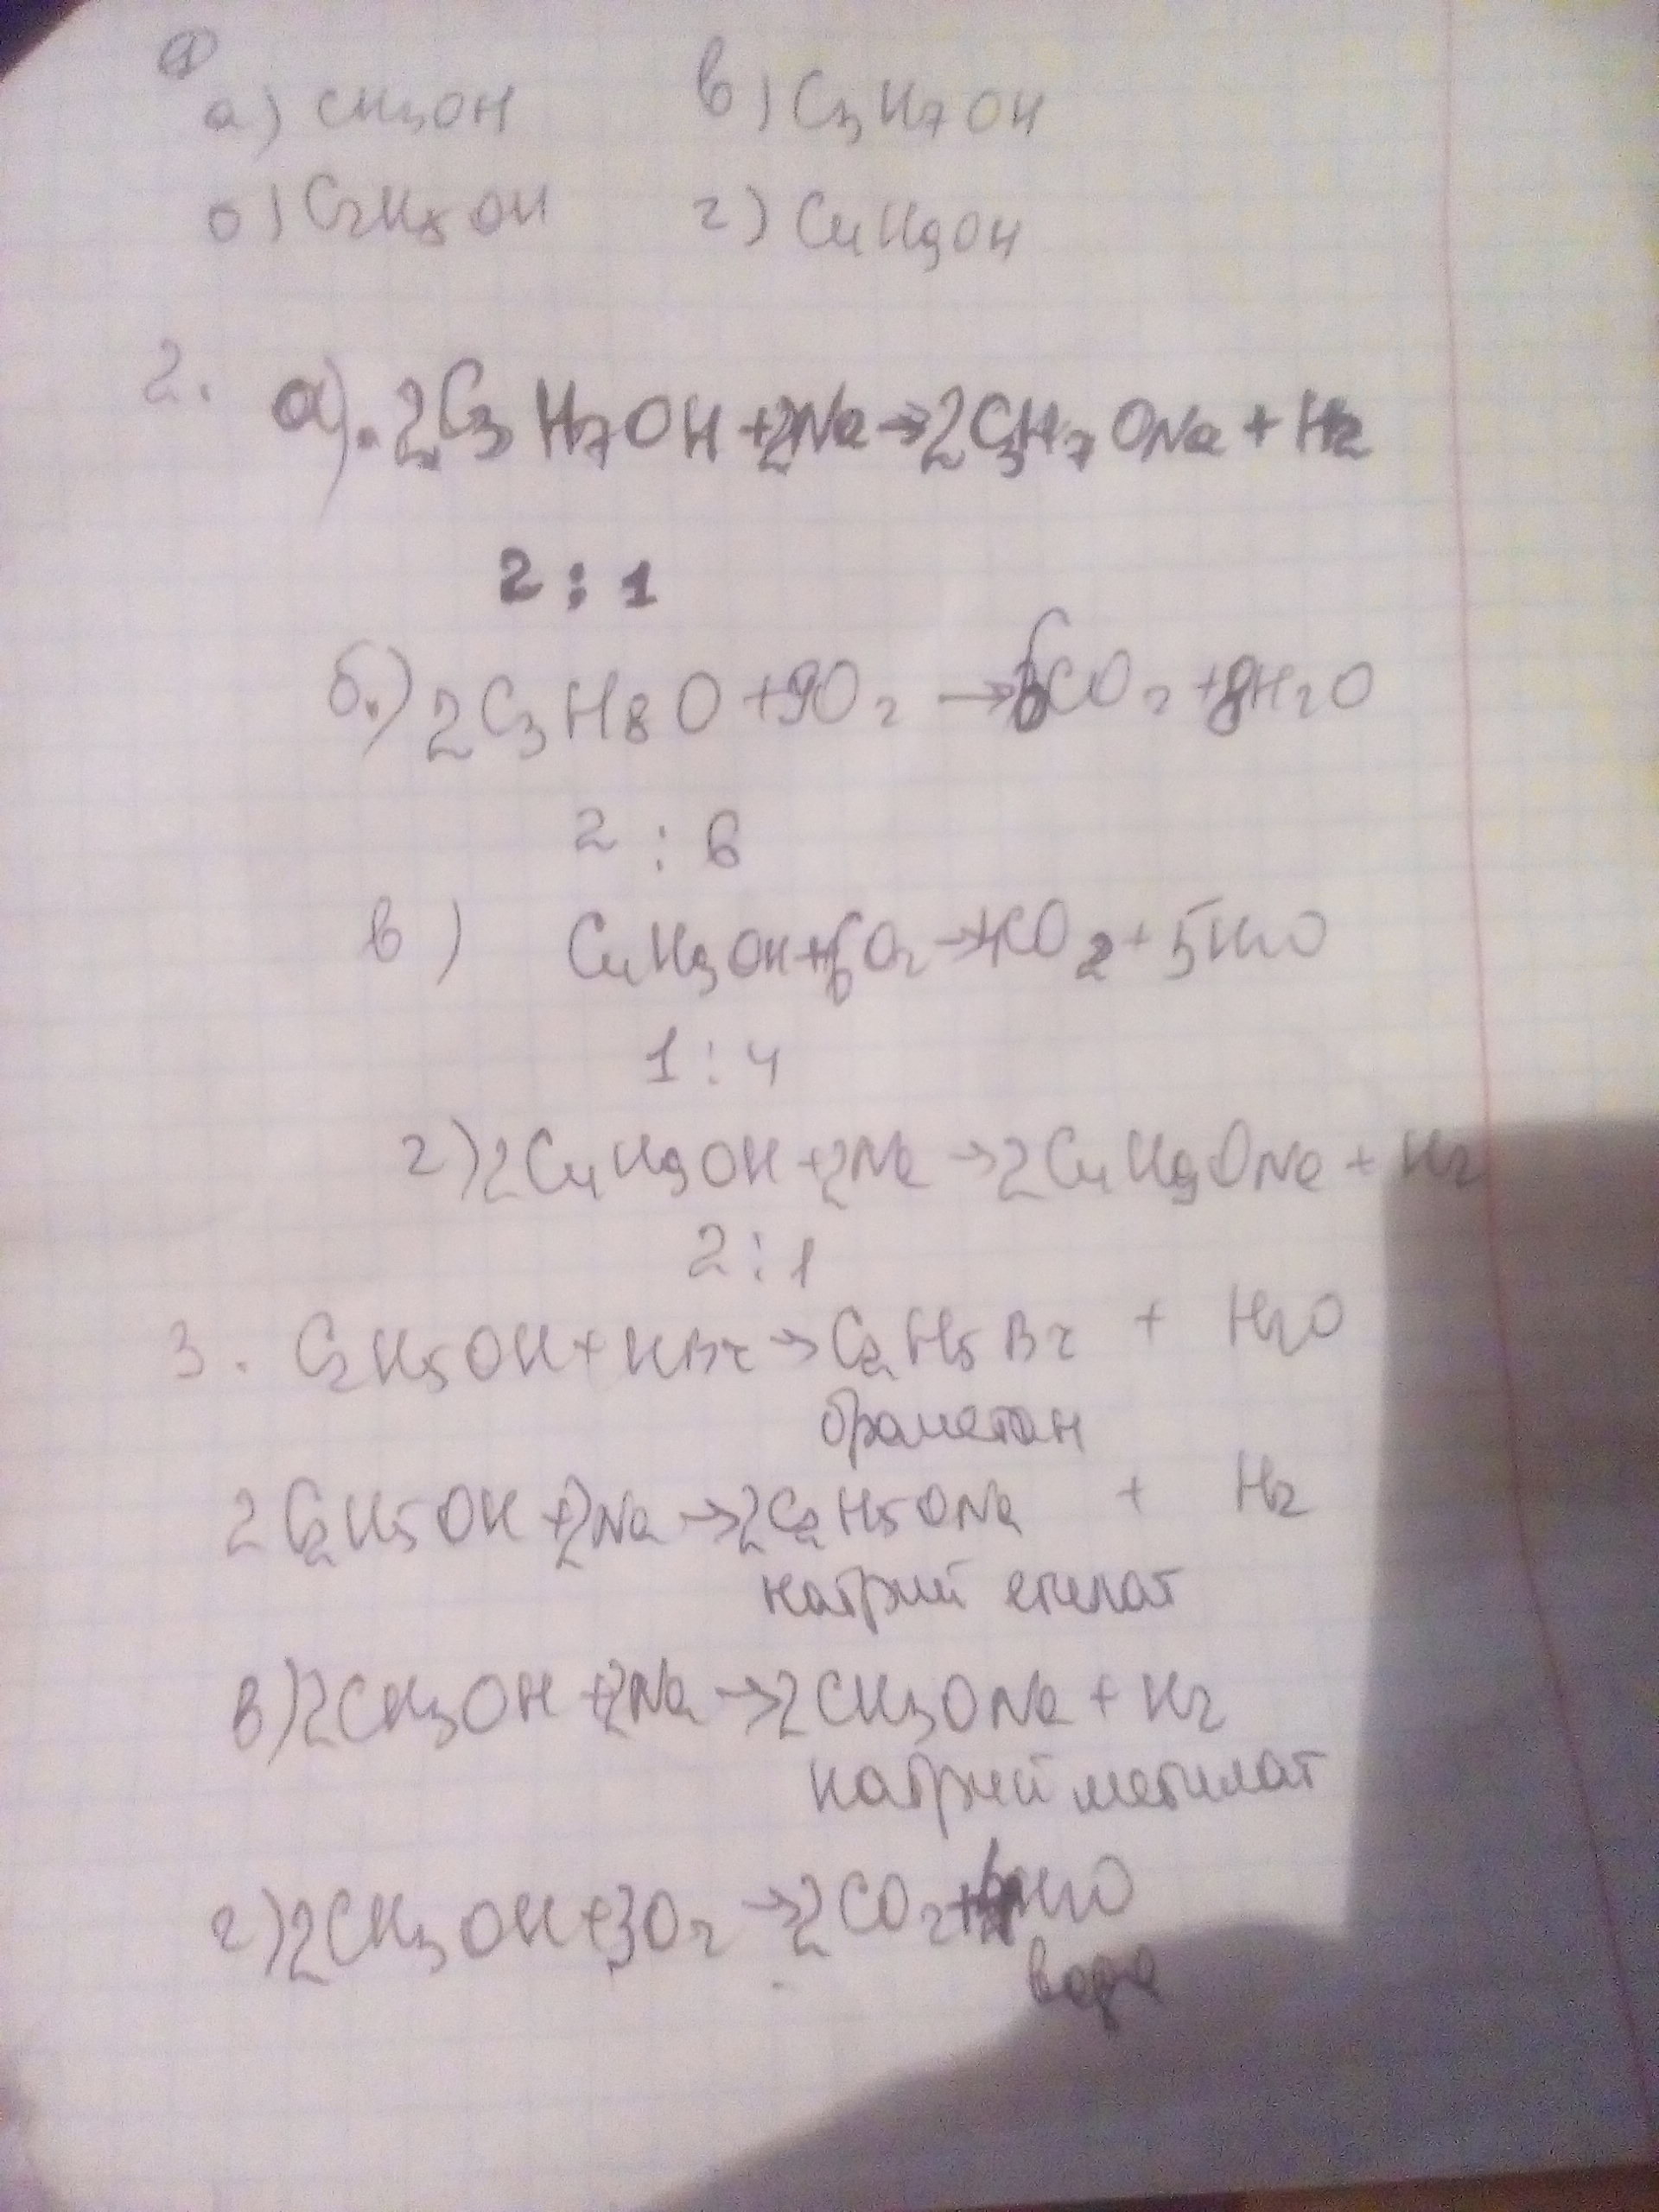 1
а) CH3OH в) C3H7OH
б) C2H5OH г) C4H9OH
2. а). 2C3H7OH + 2Na → 2C3H7ONa + H2
2 : 1
б.) 2C3H8O + 9O2 → 6CO2 + 8H2O
2 : 6
в) C4H9OH + 6O2 → 4CO2 + 5H2O
1 : 4
г) 2C4H9OH + 2Na → 2C4H9ONa + H2
2 : 1
3. C2H5OH + HBr → C2H5Br + H2O
брометан
2C2H5OH + 2Na → 2C2H5ONa + H2
натрий етилат
в) 2CH3OH + 2Na → 2CH3ONa + H2
натрий метилат
г) 2CH3OH + 3O2 → 2CO2 + 4H2O
вода